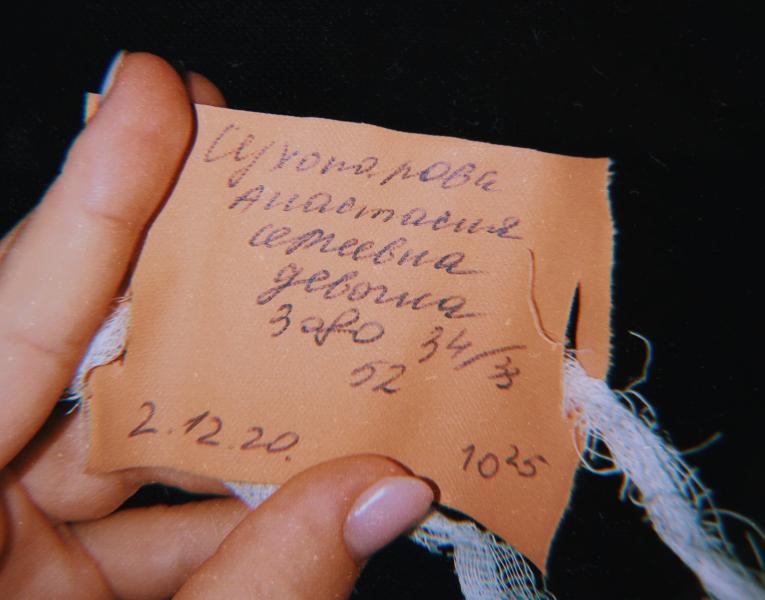 Сухопарова
Анастасия
Сергеевна
девочка
3090 34/33
52
2.12.20. 10 25